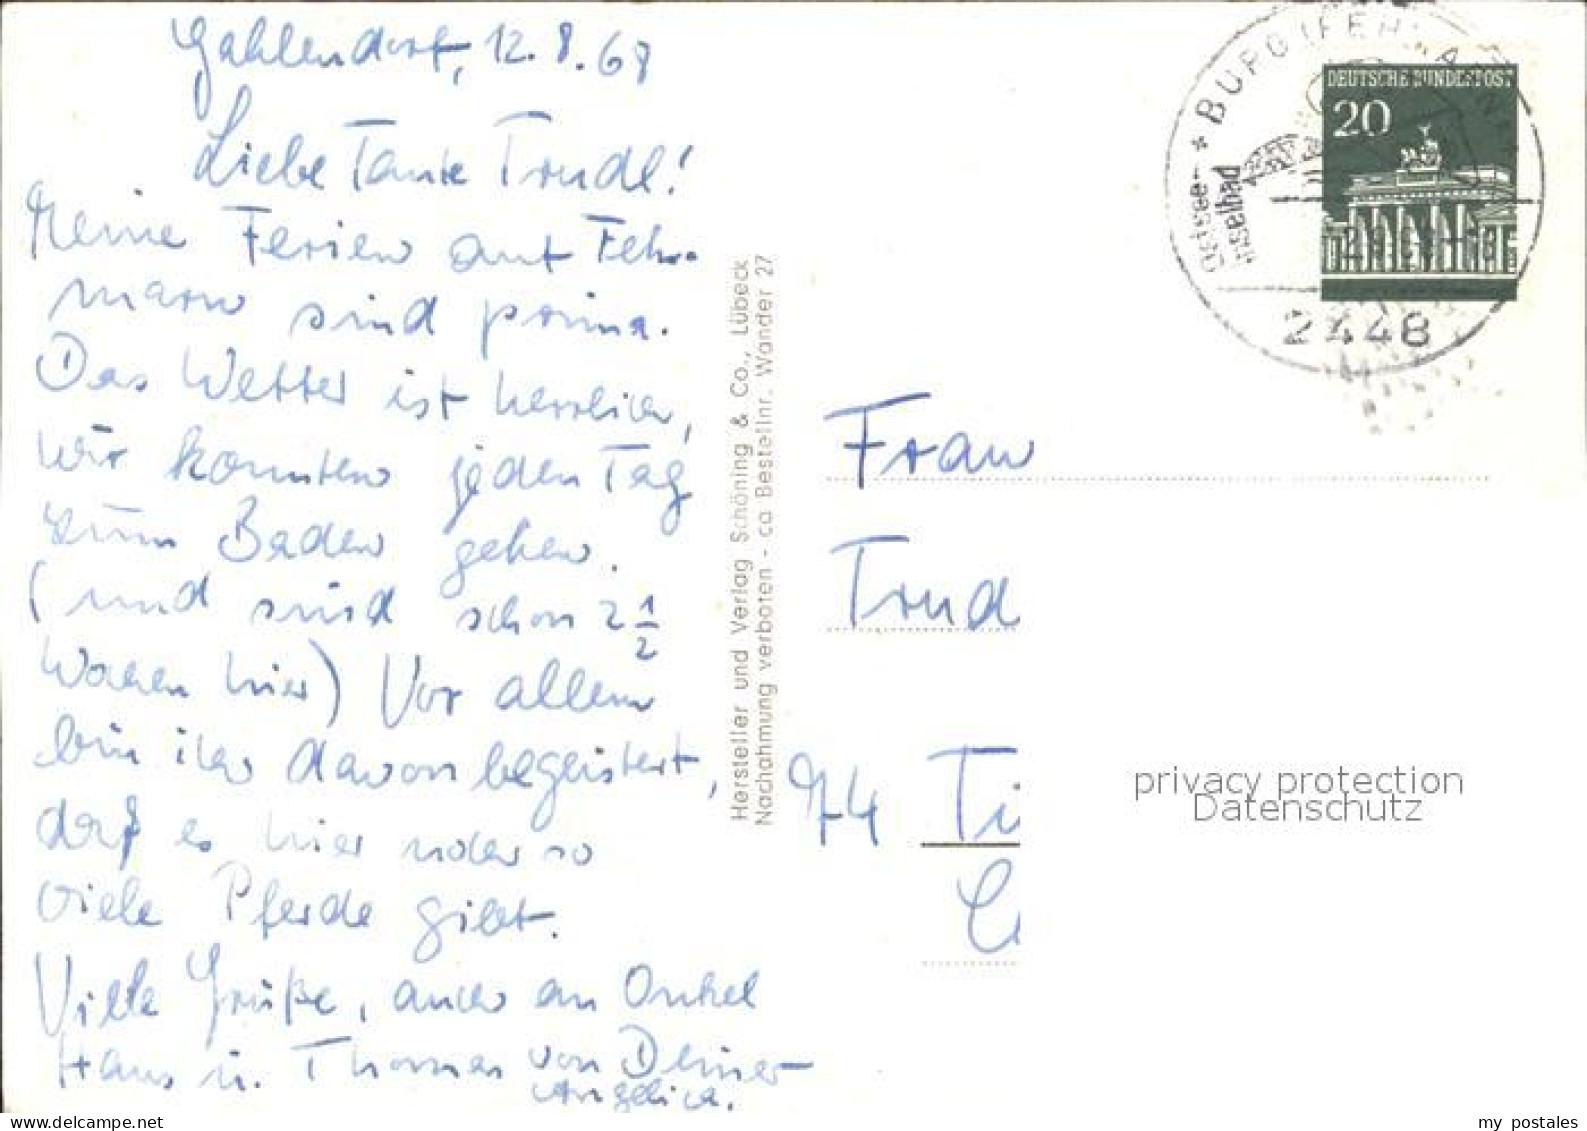 Gahlendorf, 12.8.68
Liebe Tante Trudl!
Meine Ferien auf Feh-
marn sind prima.
Das Wetter ist herrlich,
wir konnten jeden Tag
zum Baden gehen.
(und sind schon 2 1/2
Wochen hier) Vor allem
bin ich davon begeistert,
daß es hier oben so
viele Pferde gibt.
Viele Grüße, auch an Onkel
Hans u. Thomas von Deiner
Angelica.
Hersteller und Verlag Schöning & Co., Lübeck
Nachahmung verboten - ca Bestellnr. Wander 27
* BURG (FEHMARN
Ostsee-
Inselbad
2448
DEUTSCHE BUNDESPOST
20
Frau
Trud
74 Ti
privacy protection
Datenschutz
my postales